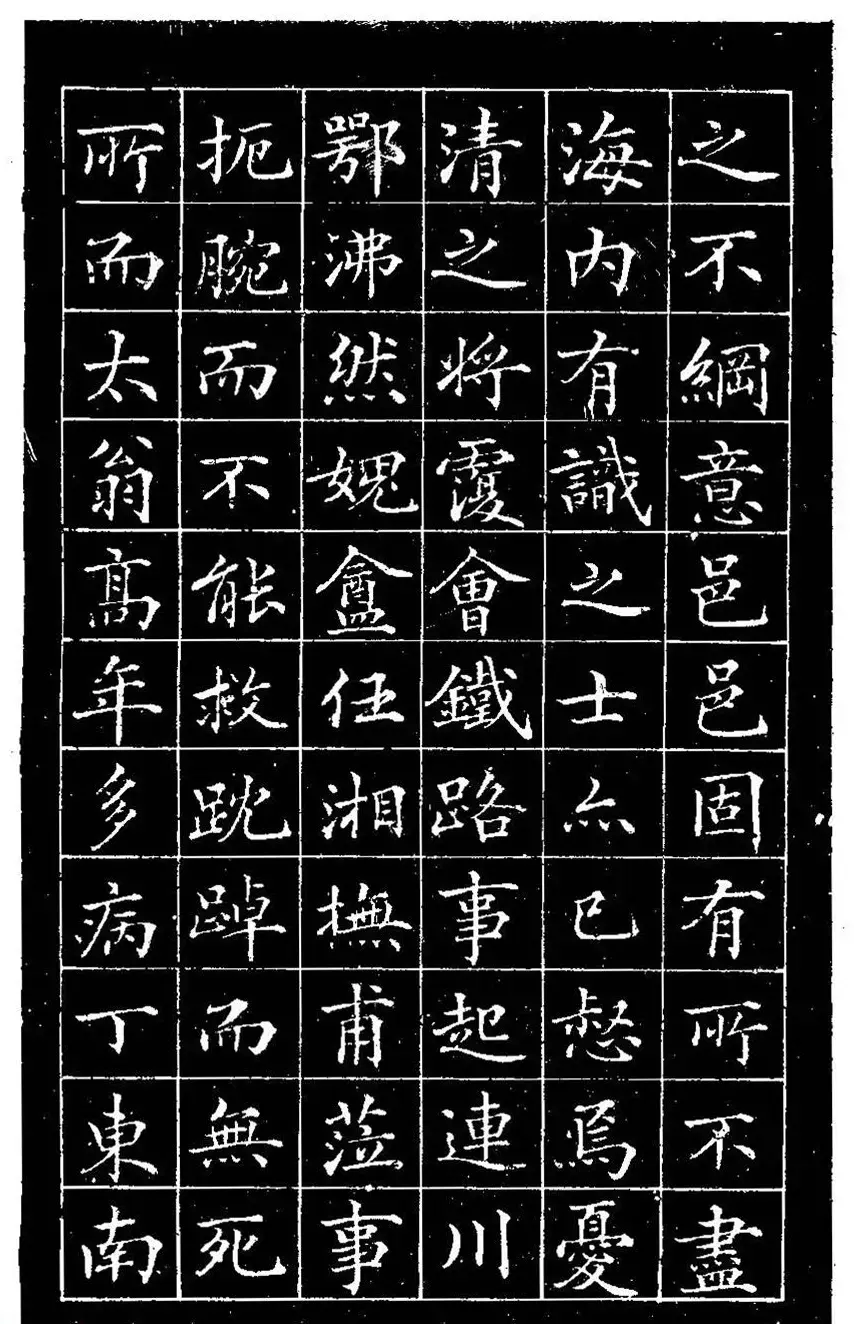 之不綱意邑邑固有所不盡
海内有識之士亦已惄焉憂
清之將覆會鐵路事起連川
鄂沸然媿盦任湘撫甫蒞事
扼腕而不能救踸踔而無死
所而太翁高年多病丁東南